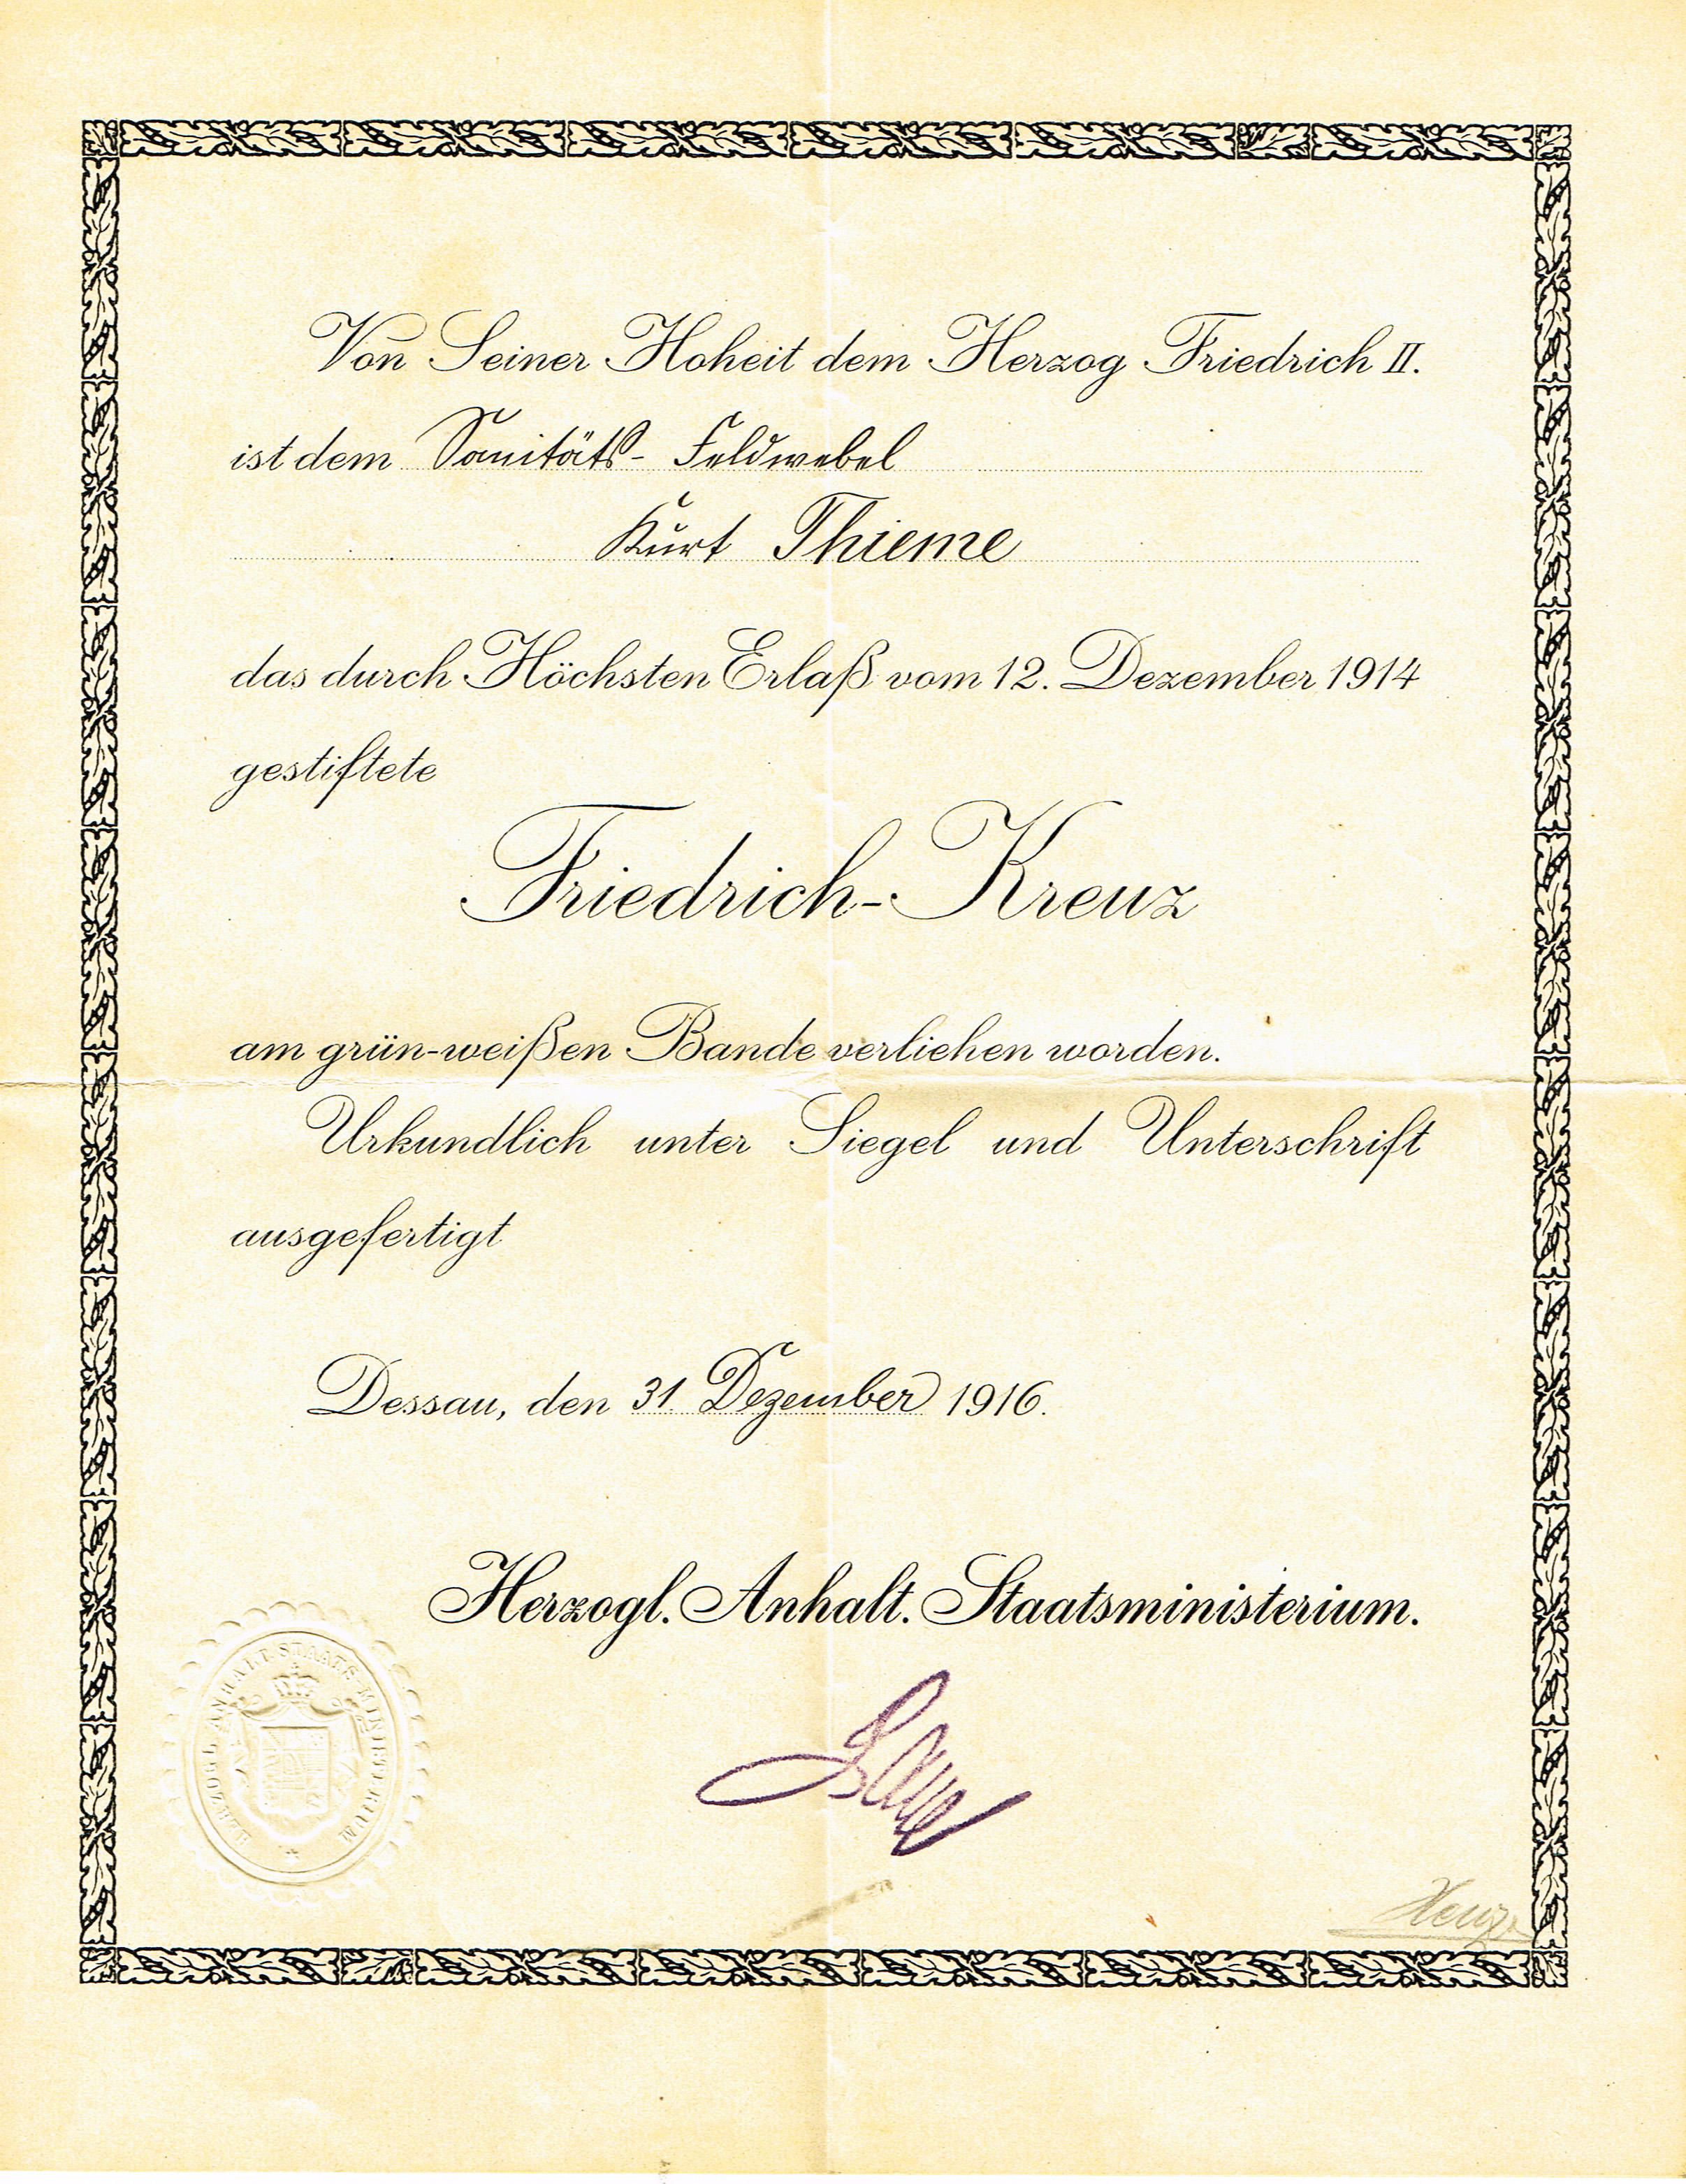 Von Seiner Hoheit dem Herzog Friedrich II.
ist dem Sanitäts-Feldwebel
Kurt Thieme
das durch Höchsten Erlaß vom 12. Dezember 1914
gestiftete
Friedrich-Kreuz
am grün-weißen Bande verliehen worden.
Urkundlich unter Siegel und Unterschrift
ausgefertigt
Dessau, den 31 Dezember 1916.
Herzogl. Anhalt. Staatsministerium.
HERZOGL. ANHALT. STAATS-MINISTERIUM